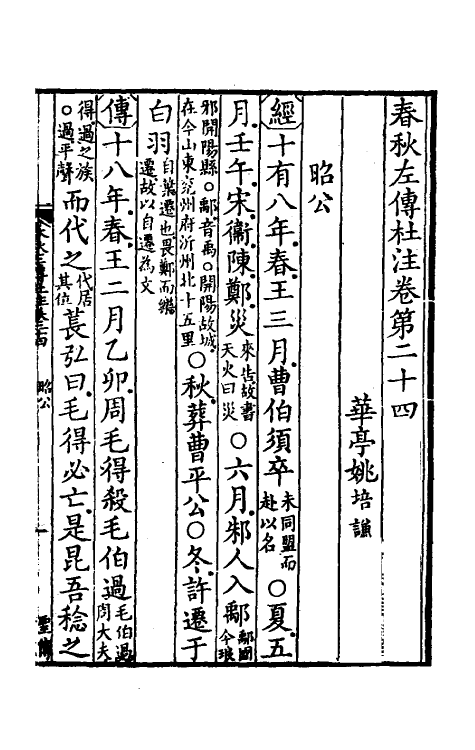 春秋左傳杜注卷第二十四
華亭姚培謙
昭公
經十有八年春王三月曹伯須卒未同盟而赴以名○夏五
月壬午宋衞陳鄭災來告故書天火曰災○六月邾人入鄅鄅國今琅
邪開陽縣○鄅音禹○開陽故城在今山東兖州府沂州北十五里○秋葬曹平公○冬許遷于
白羽自葉遷也畏鄭而樂遷故以自遷為文
傳十八年春王二月乙卯周毛得殺毛伯過毛伯過周大夫
得過之族○過平聲而代之代居其位萇弘曰毛得必亡是昆吾稔之
昭公